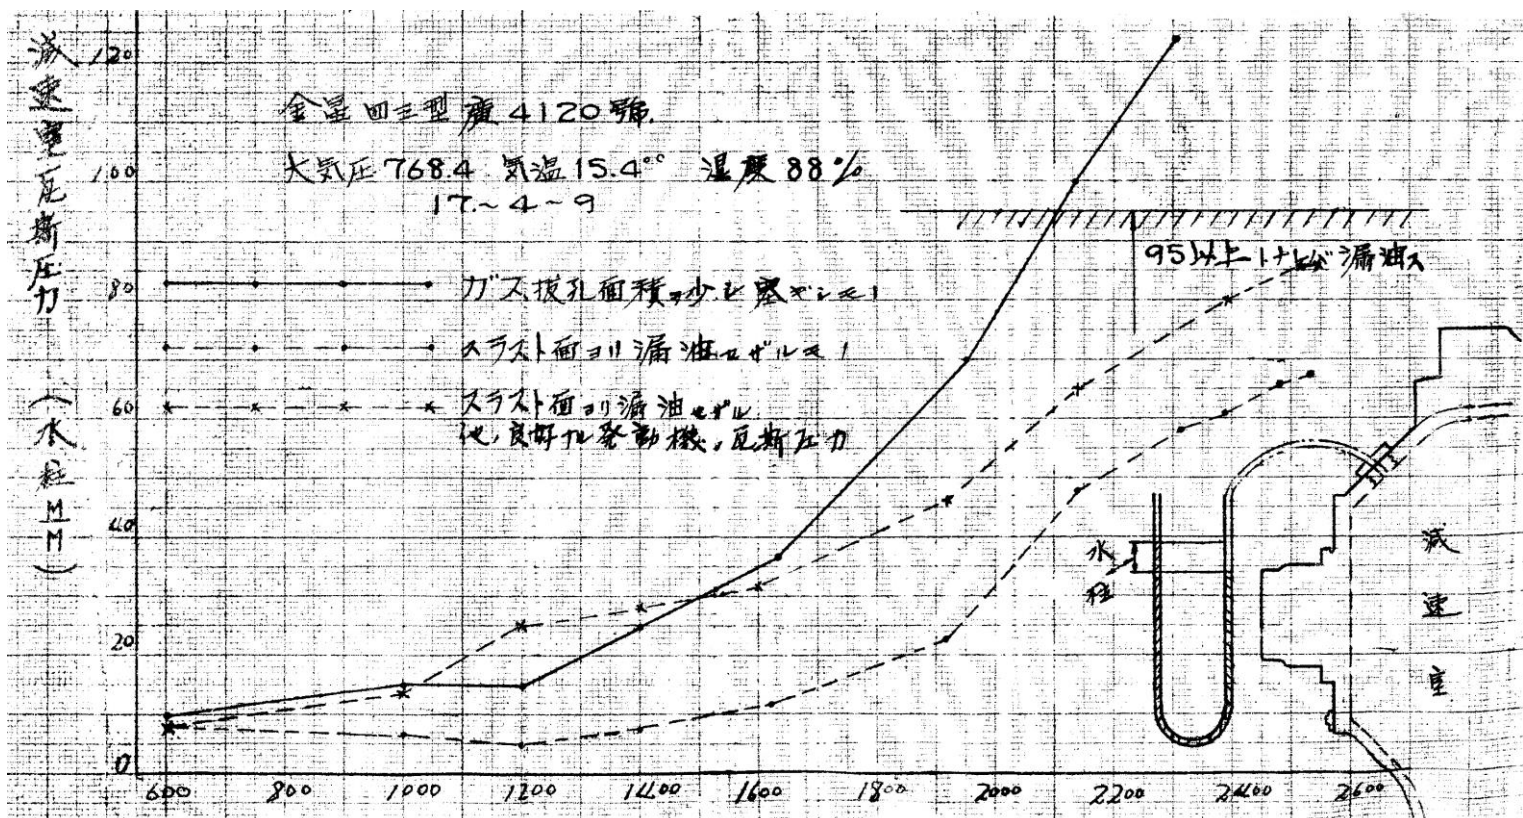 減速室瓦斯圧力（水柱MM）
120
100
80
60
40
20
0
金星四三型 4120號.
大気圧 768.4 気温 15.4°° 湿度 88%
17.~4~9
ガス抜孔面積ヲ少シ塞ギシモノ
スラスト面ヨリ漏油セザルモノ
スラスト面ヨリ漏油セザル
他ノ良好ナル発動機ノ瓦斯圧力
95以上トナレバ漏油ス
水柱
減速室
600 800 1000 1200 1400 1600 1800 2000 2200 2400 2600